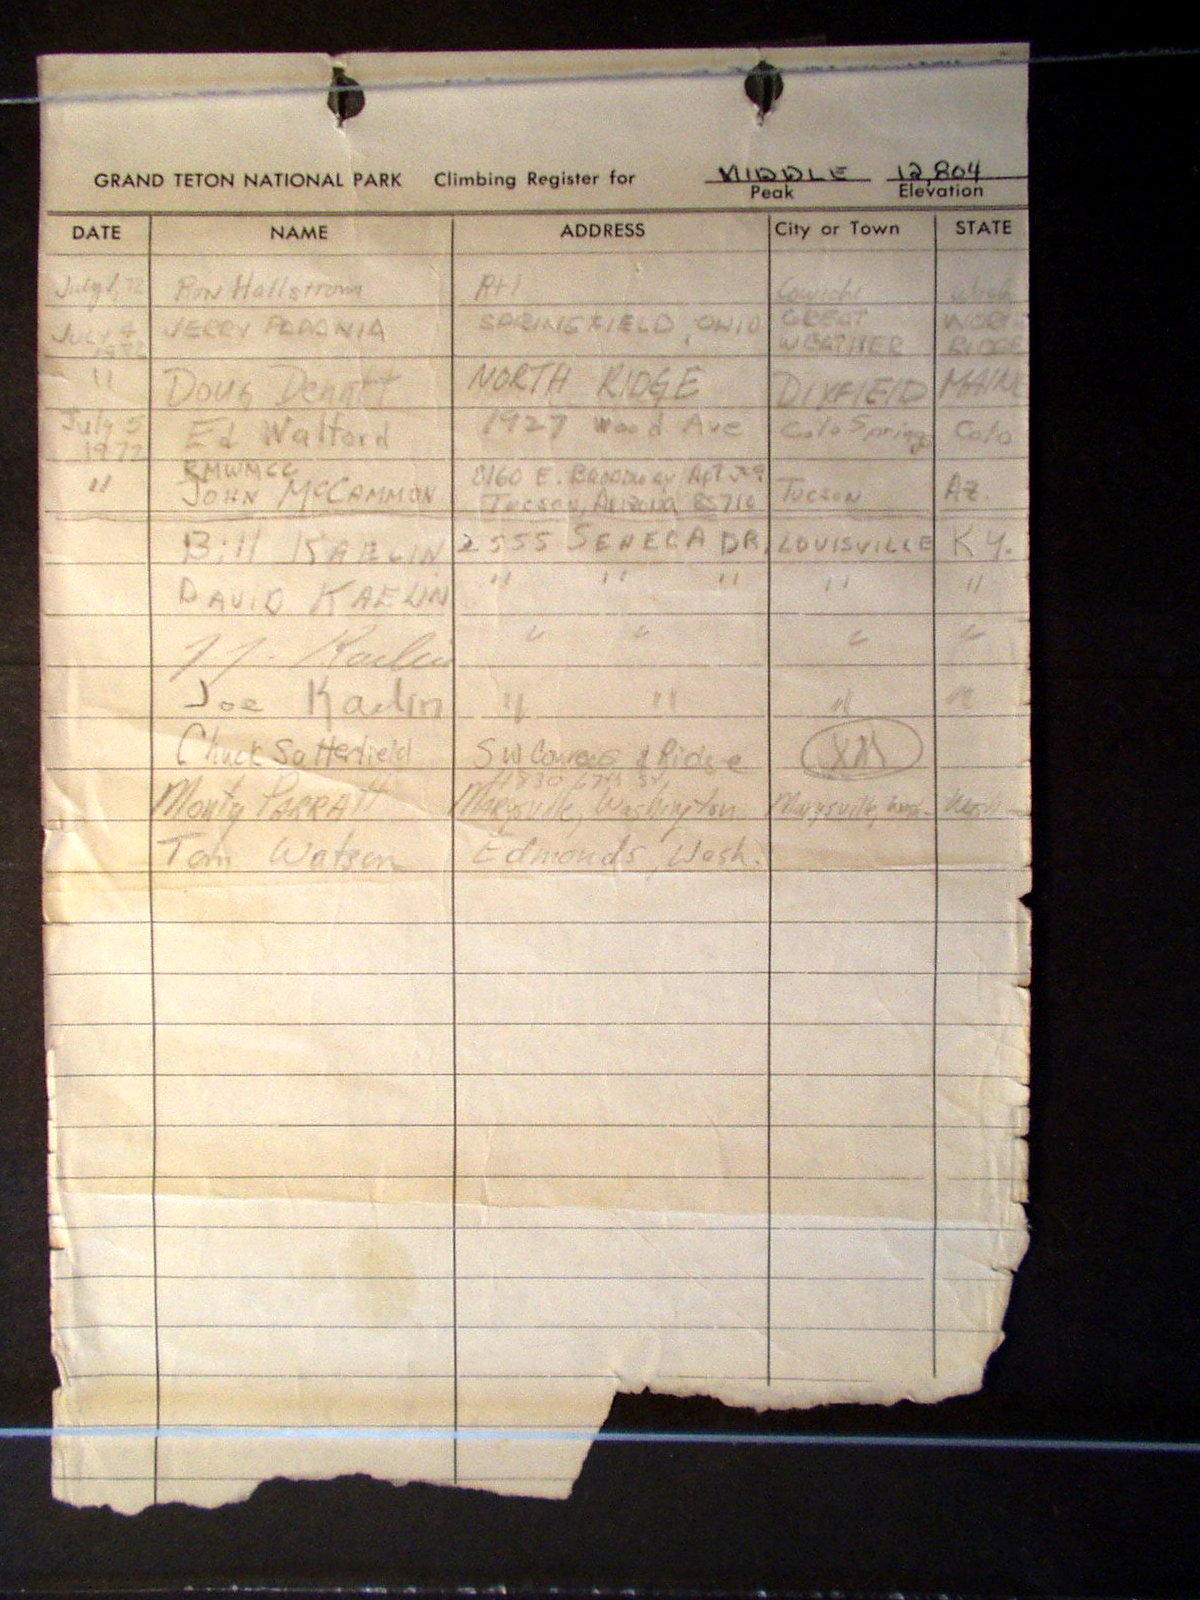 GRAND TETON NATIONAL PARK Climbing Register for MIDDLE 12,804
Peak Elevation
DATE NAME ADDRESS City or Town STATE
July 1, 72 Ron Hallstrom Rt 1 Cowichi Wash
July 4 1972 JERRY SPRINGFIELD, OHIO GREAT WEATHER NORTH RIDGE
" Doug NORTH RIDGE DIXFIELD MAINE
July 5 1972 Ed Walford 1927 Wood Ave Colo Springs Colo
RMWMCC
" JOHN McCAMMON 8160 E. Broadway Apt Tucson, Arizona 85710 Tucson AZ.
Bill KAELIN 2555 SENECA DR. LOUISVILLE KY.
DAVID KAELIN " " " " "
J. J. Kaelin " " " "
Joe Kaelin " " " "
Chuck Satterfield SW & Ridge
Monty PARRATT 67th Marysville, Washington Marysville, Wash
Tom Watson Edmonds, Wash.